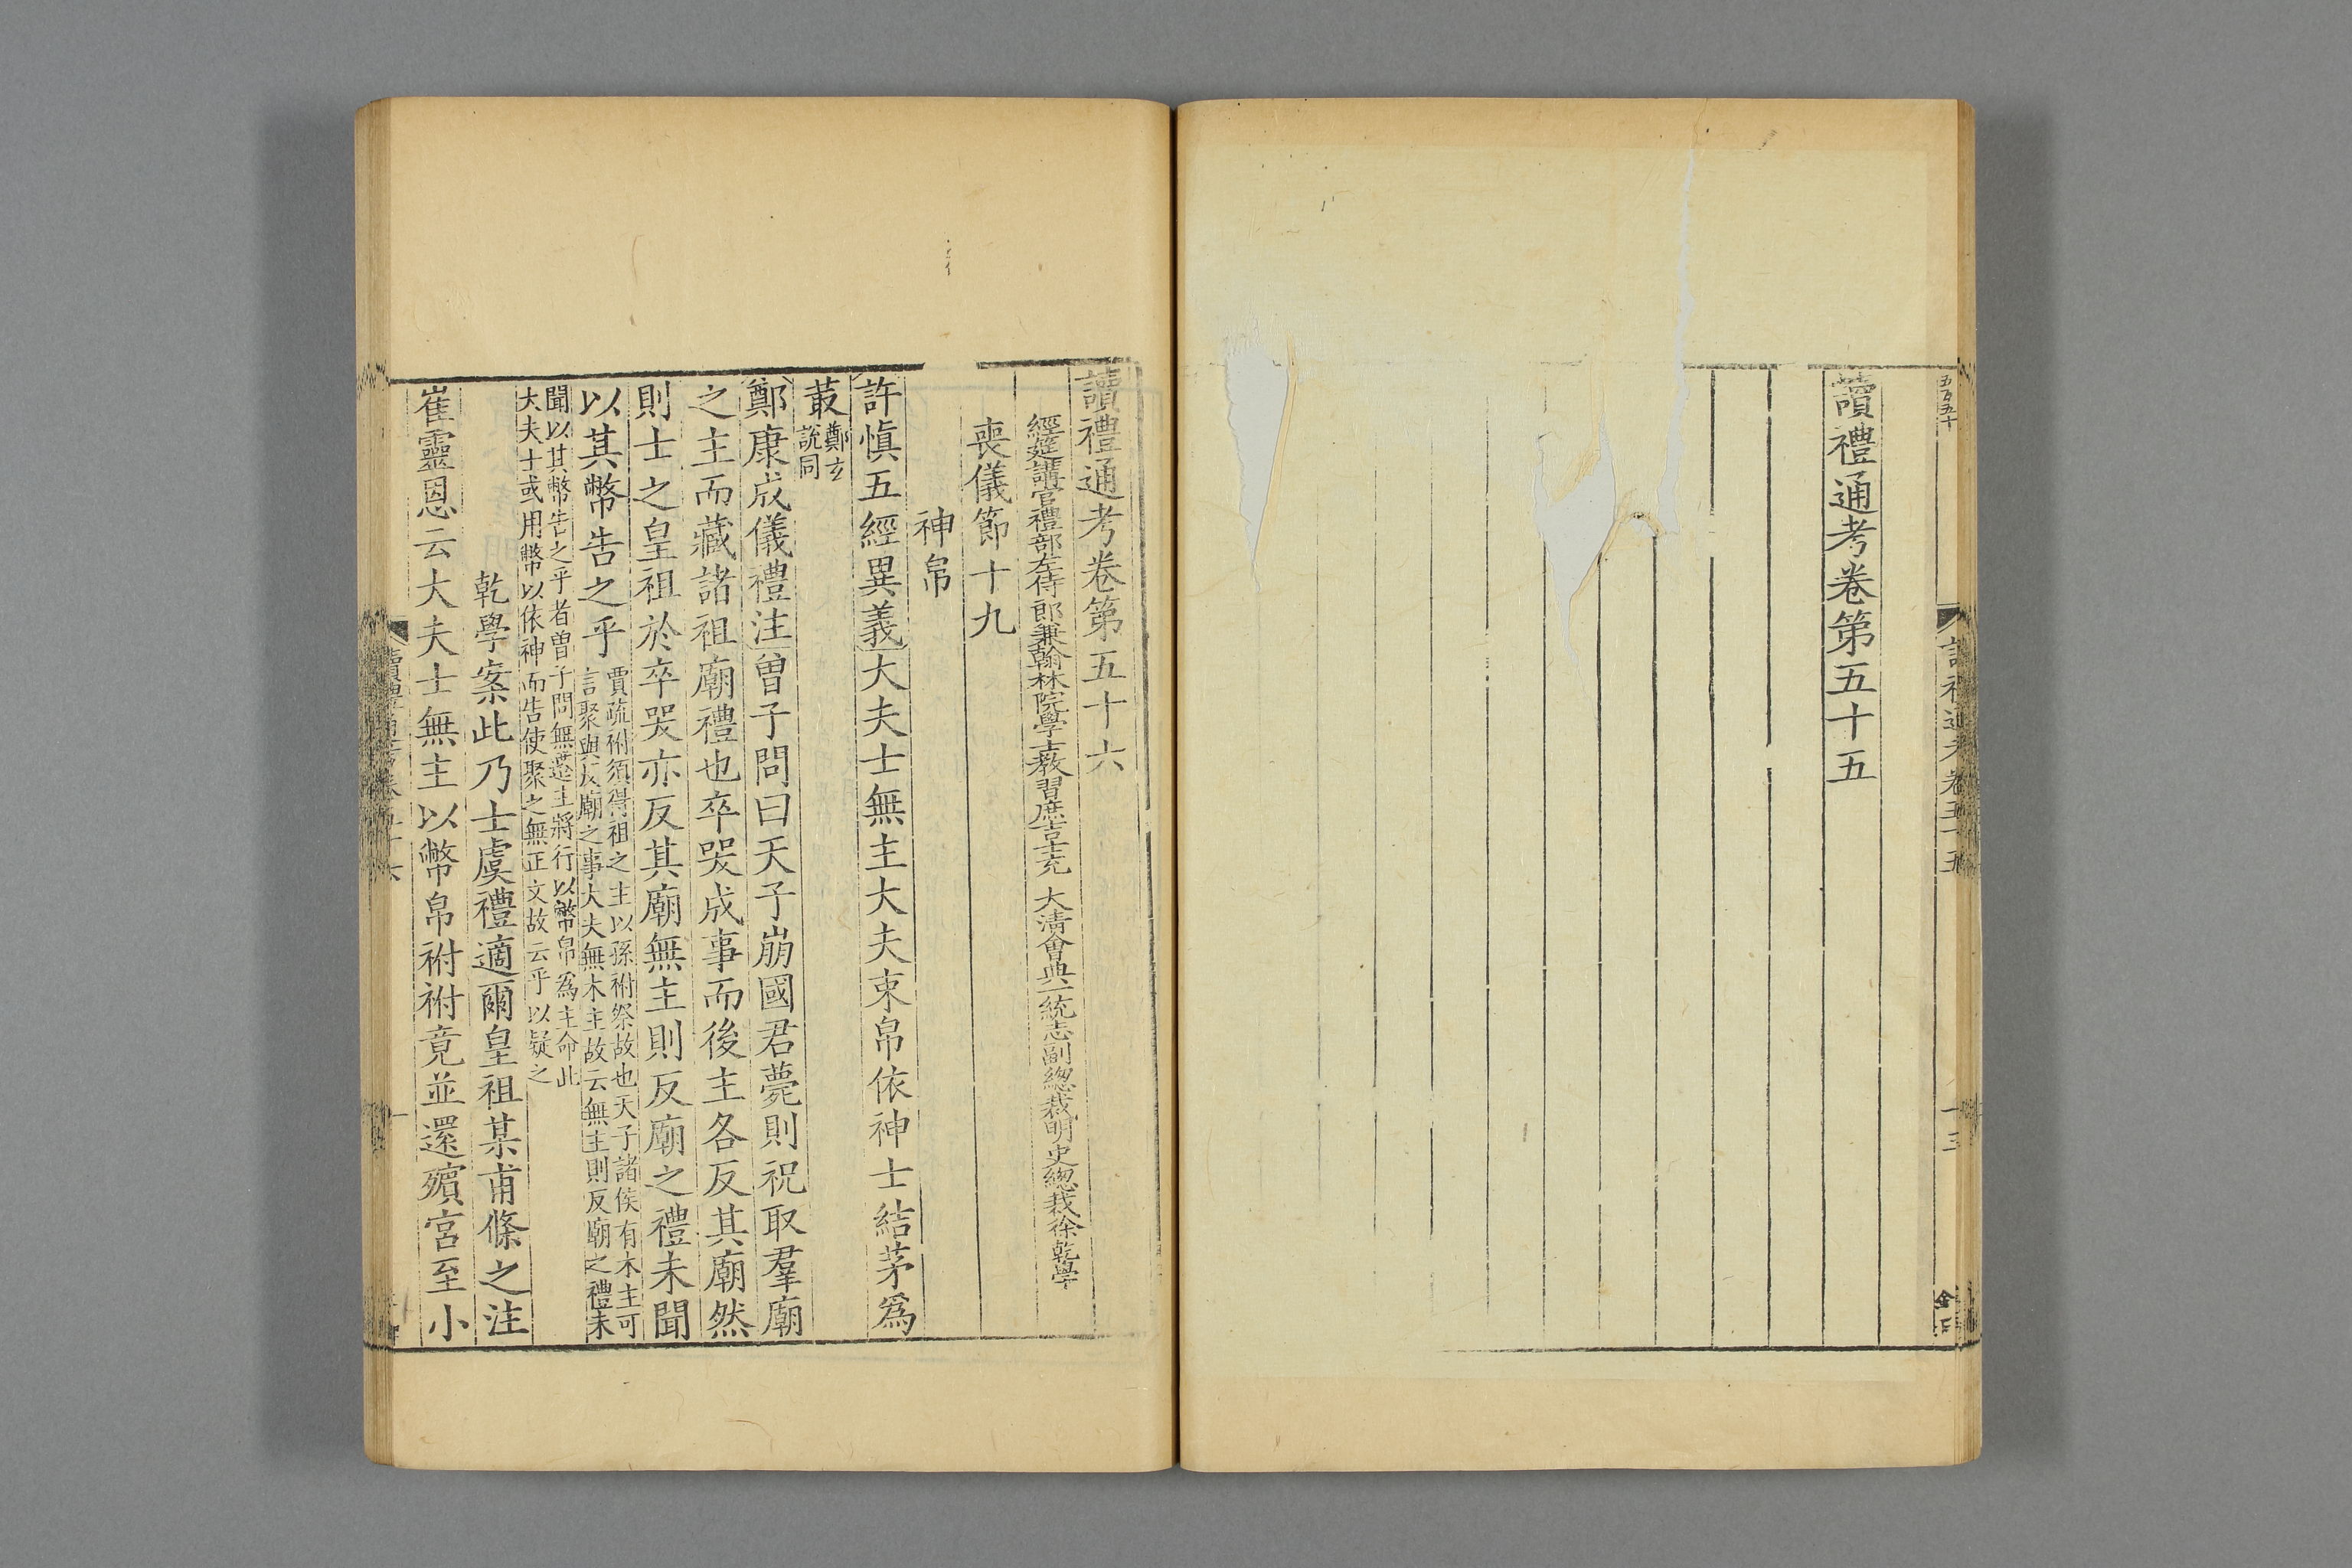 讀禮通考卷第五十五
讀禮通考卷第五十六
經筵講官禮部左侍郎兼翰林院學士教習庶吉士充　大清會典一統志副總裁明史總裁徐乾學
喪儀節十九
神帛
許慎五經異義大夫士無主大夫束帛依神士結茅爲
菆鄭玄
說同
鄭康成儀禮注曾子問曰天子崩國君薨則祝取羣廟
之主而藏諸祖廟禮也卒哭成事而後主各反其廟然
則士之皇祖於卒哭亦反其廟無主則反廟之禮未聞
以其幣告之乎賈疏祔須得祖之主以孫祔祭故也天子諸侯有木主可
言聚與反廟之事大夫無木主故云無主則反廟之禮未
聞以其幣告之乎者曾子問無遷主將行以幣帛爲主命此
大夫士或用幣以依神而告使聚之無正文故云乎以疑之
乾學案此乃士虞禮適爾皇祖某甫條之注
崔靈恩云大夫士無主以幣帛祔祔竟並還殯宮至小